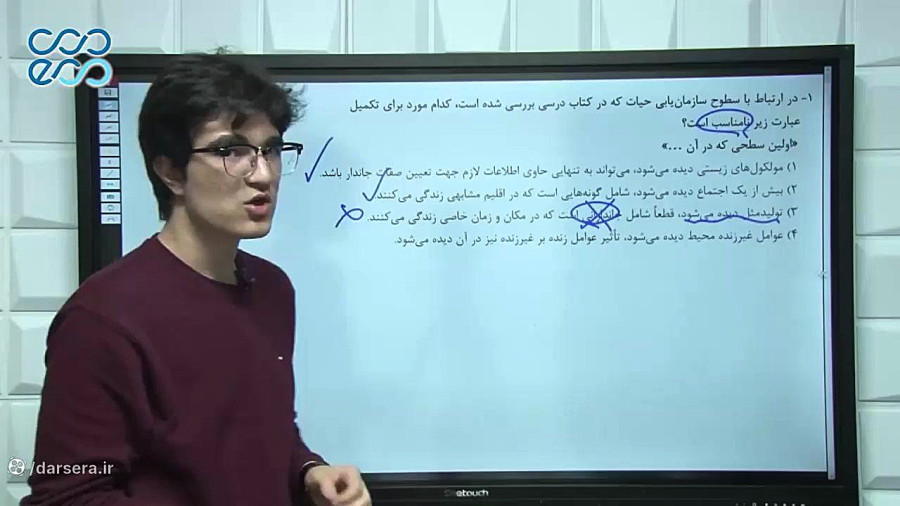 ۱- در ارتباط با سطوح سازمان‌یابی حیات که در کتاب درسی بررسی شده است، کدام مورد برای تکمیل
عبارت زیر نامناسب است؟
«اولین سطحی که در آن ...»
۱) مولکول‌های زیستی دیده می‌شود، می‌تواند به تنهایی حاوی اطلاعات لازم جهت تعیین صفات جاندار باشد.
۲) بیش از یک اجتماع دیده می‌شود، شامل گونه‌هایی است که در اقلیم مشابهی زندگی می‌کنند.
۳) تولیدمثل دیده می‌شود، قطعاً شامل است که در مکان و زمان خاصی زندگی می‌کنند.
۴) عوامل غیرزنده محیط دیده می‌شود، تأثیر عوامل زنده بر غیرزنده نیز در آن دیده می‌شود.
/darsera.ir